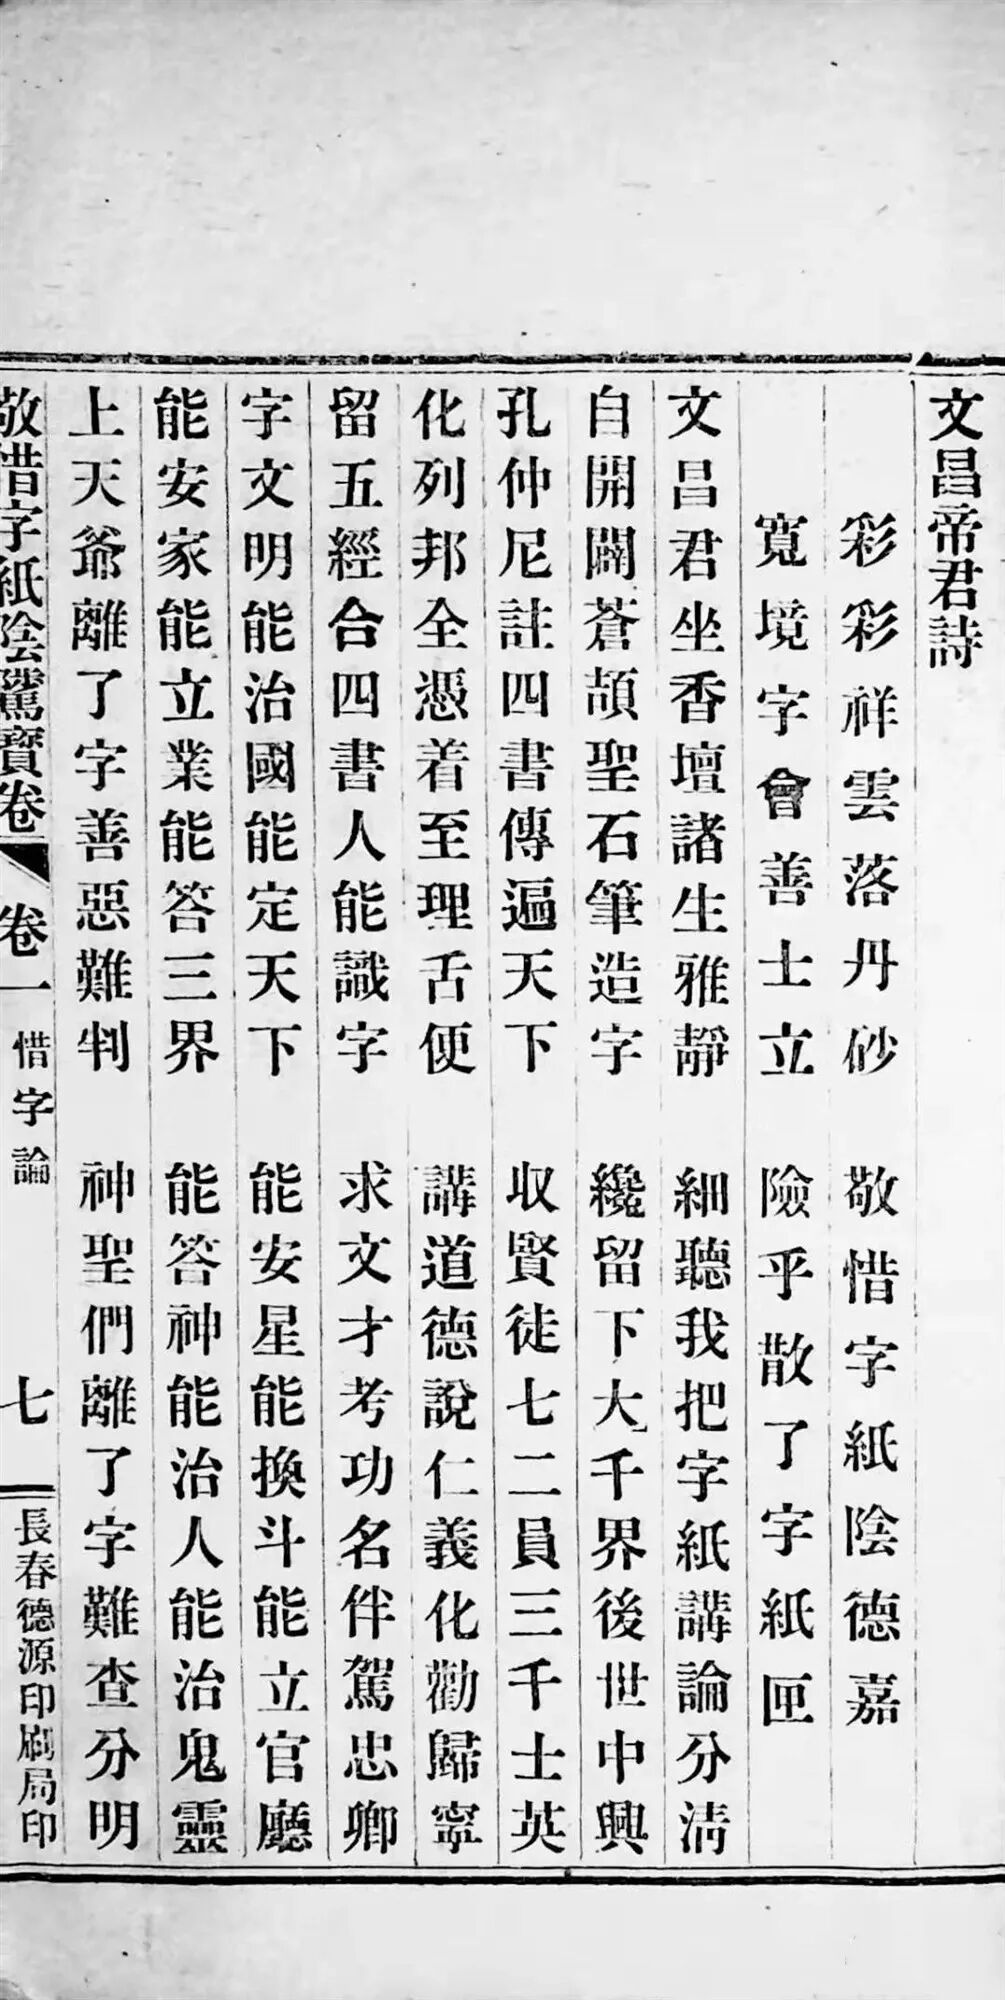 文昌帝君詩
彩彩祥雲落丹砂　敬惜字紙陰德嘉
寬境字會善士立　險乎散了字紙匣
文昌君坐香壇諸生雅靜　細聽我把字紙講論分清
自開闢蒼頡聖石筆造字　纔留下大千界後世中興
孔仲尼註四書傳遍天下　收賢徒七二員三千士英
化列邦全憑着至理舌便　講道德說仁義化勸歸寧
留五經合四書人能識字　求文才考功名伴駕忠卿
字文明能治國能定天下　能安星能換斗能立官廳
能安家能立業能答三界　能答神能治人能治鬼靈
上天爺離了字善惡難判　神聖們離了字難查分明
敬惜字紙陰騭寶卷　卷一　惜字論　七　長春德源印刷局印